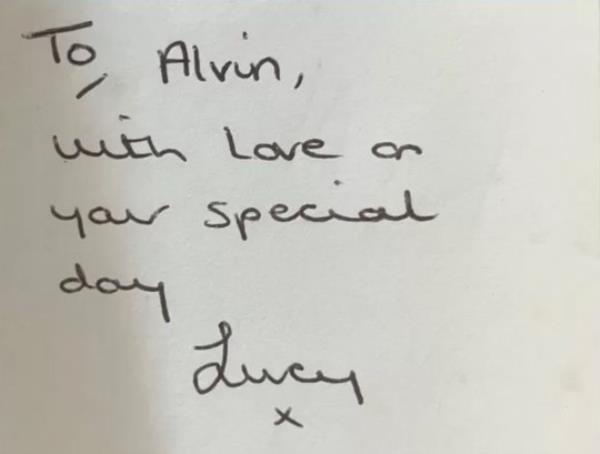 To Alvin,
with Love on
your special
day
Lucy
x